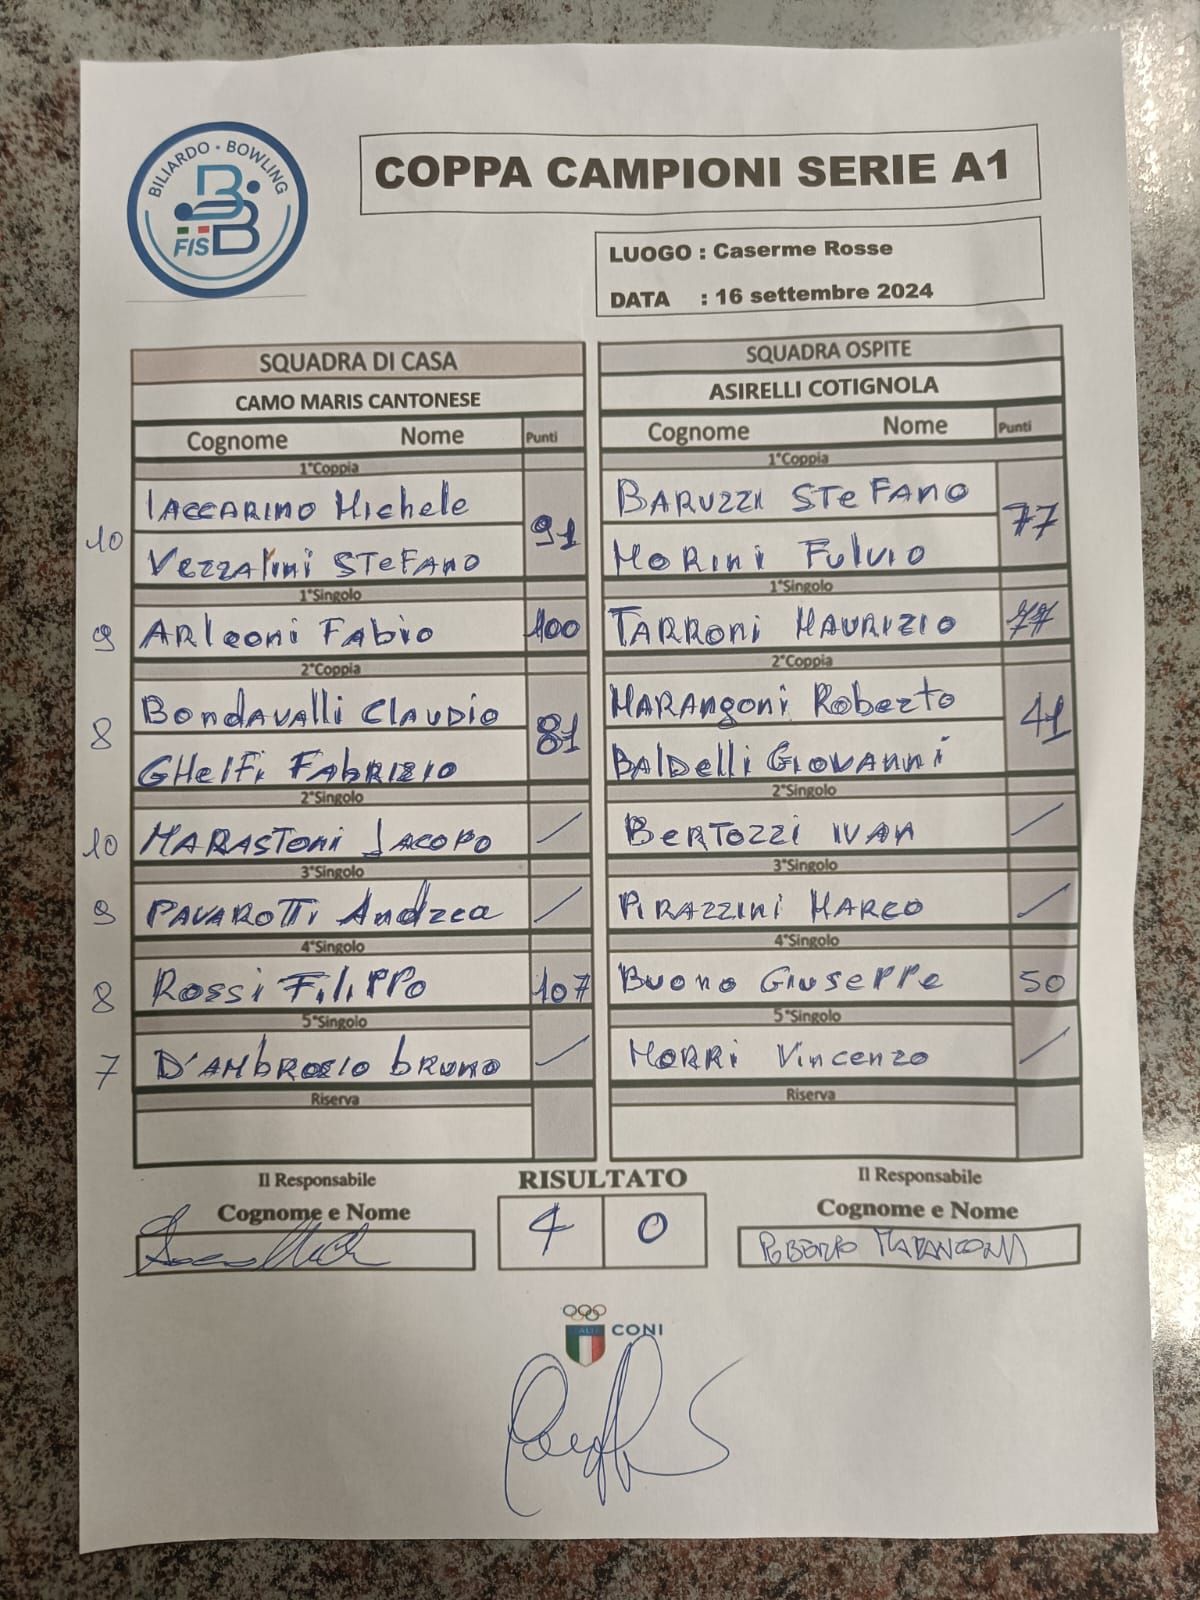 BILIARDO • BOWLING
FISBB
COPPA CAMPIONI SERIE A1
LUOGO : Caserme Rosse
DATA : 16 settembre 2024
SQUADRA DI CASA
SQUADRA OSPITE
CAMO MARIS CANTONESE
ASIRELLI COTIGNOLA
Cognome Nome Punti
Cognome Nome Punti
1°Coppia
1°Coppia
10 IACCARINO Michele 91
Vezzalini STeFANO
BARUZZI STeFANO 77
MORini Fulvio
1°Singolo
1°Singolo
9 ARleoni Fabio 100
TARRONi MAURIZIO 77
2°Coppia
2°Coppia
8 Bondavalli Claudio 81
GHelFi FABRIZIO
MARAngoni Roberto 41
BAlDelli GiovAnni
2°Singolo
2°Singolo
10 MARASToni JACOPO /
BeRTOZZI IVAN /
3°Singolo
3°Singolo
9 PAVAROTTi Andrea /
PiRAZZini MARCO /
4°Singolo
4°Singolo
8 Rossi FiliPPO 107
Buono GiusePPe 50
5°Singolo
5°Singolo
7 D'AMbROSIO bRUNO /
MORRi Vincenzo /
Riserva
Riserva
Il Responsabile
RISULTATO
Il Responsabile
Cognome e Nome
Cognome e Nome
4 0
ROBERTO MARANGONI
ITALIA CONI